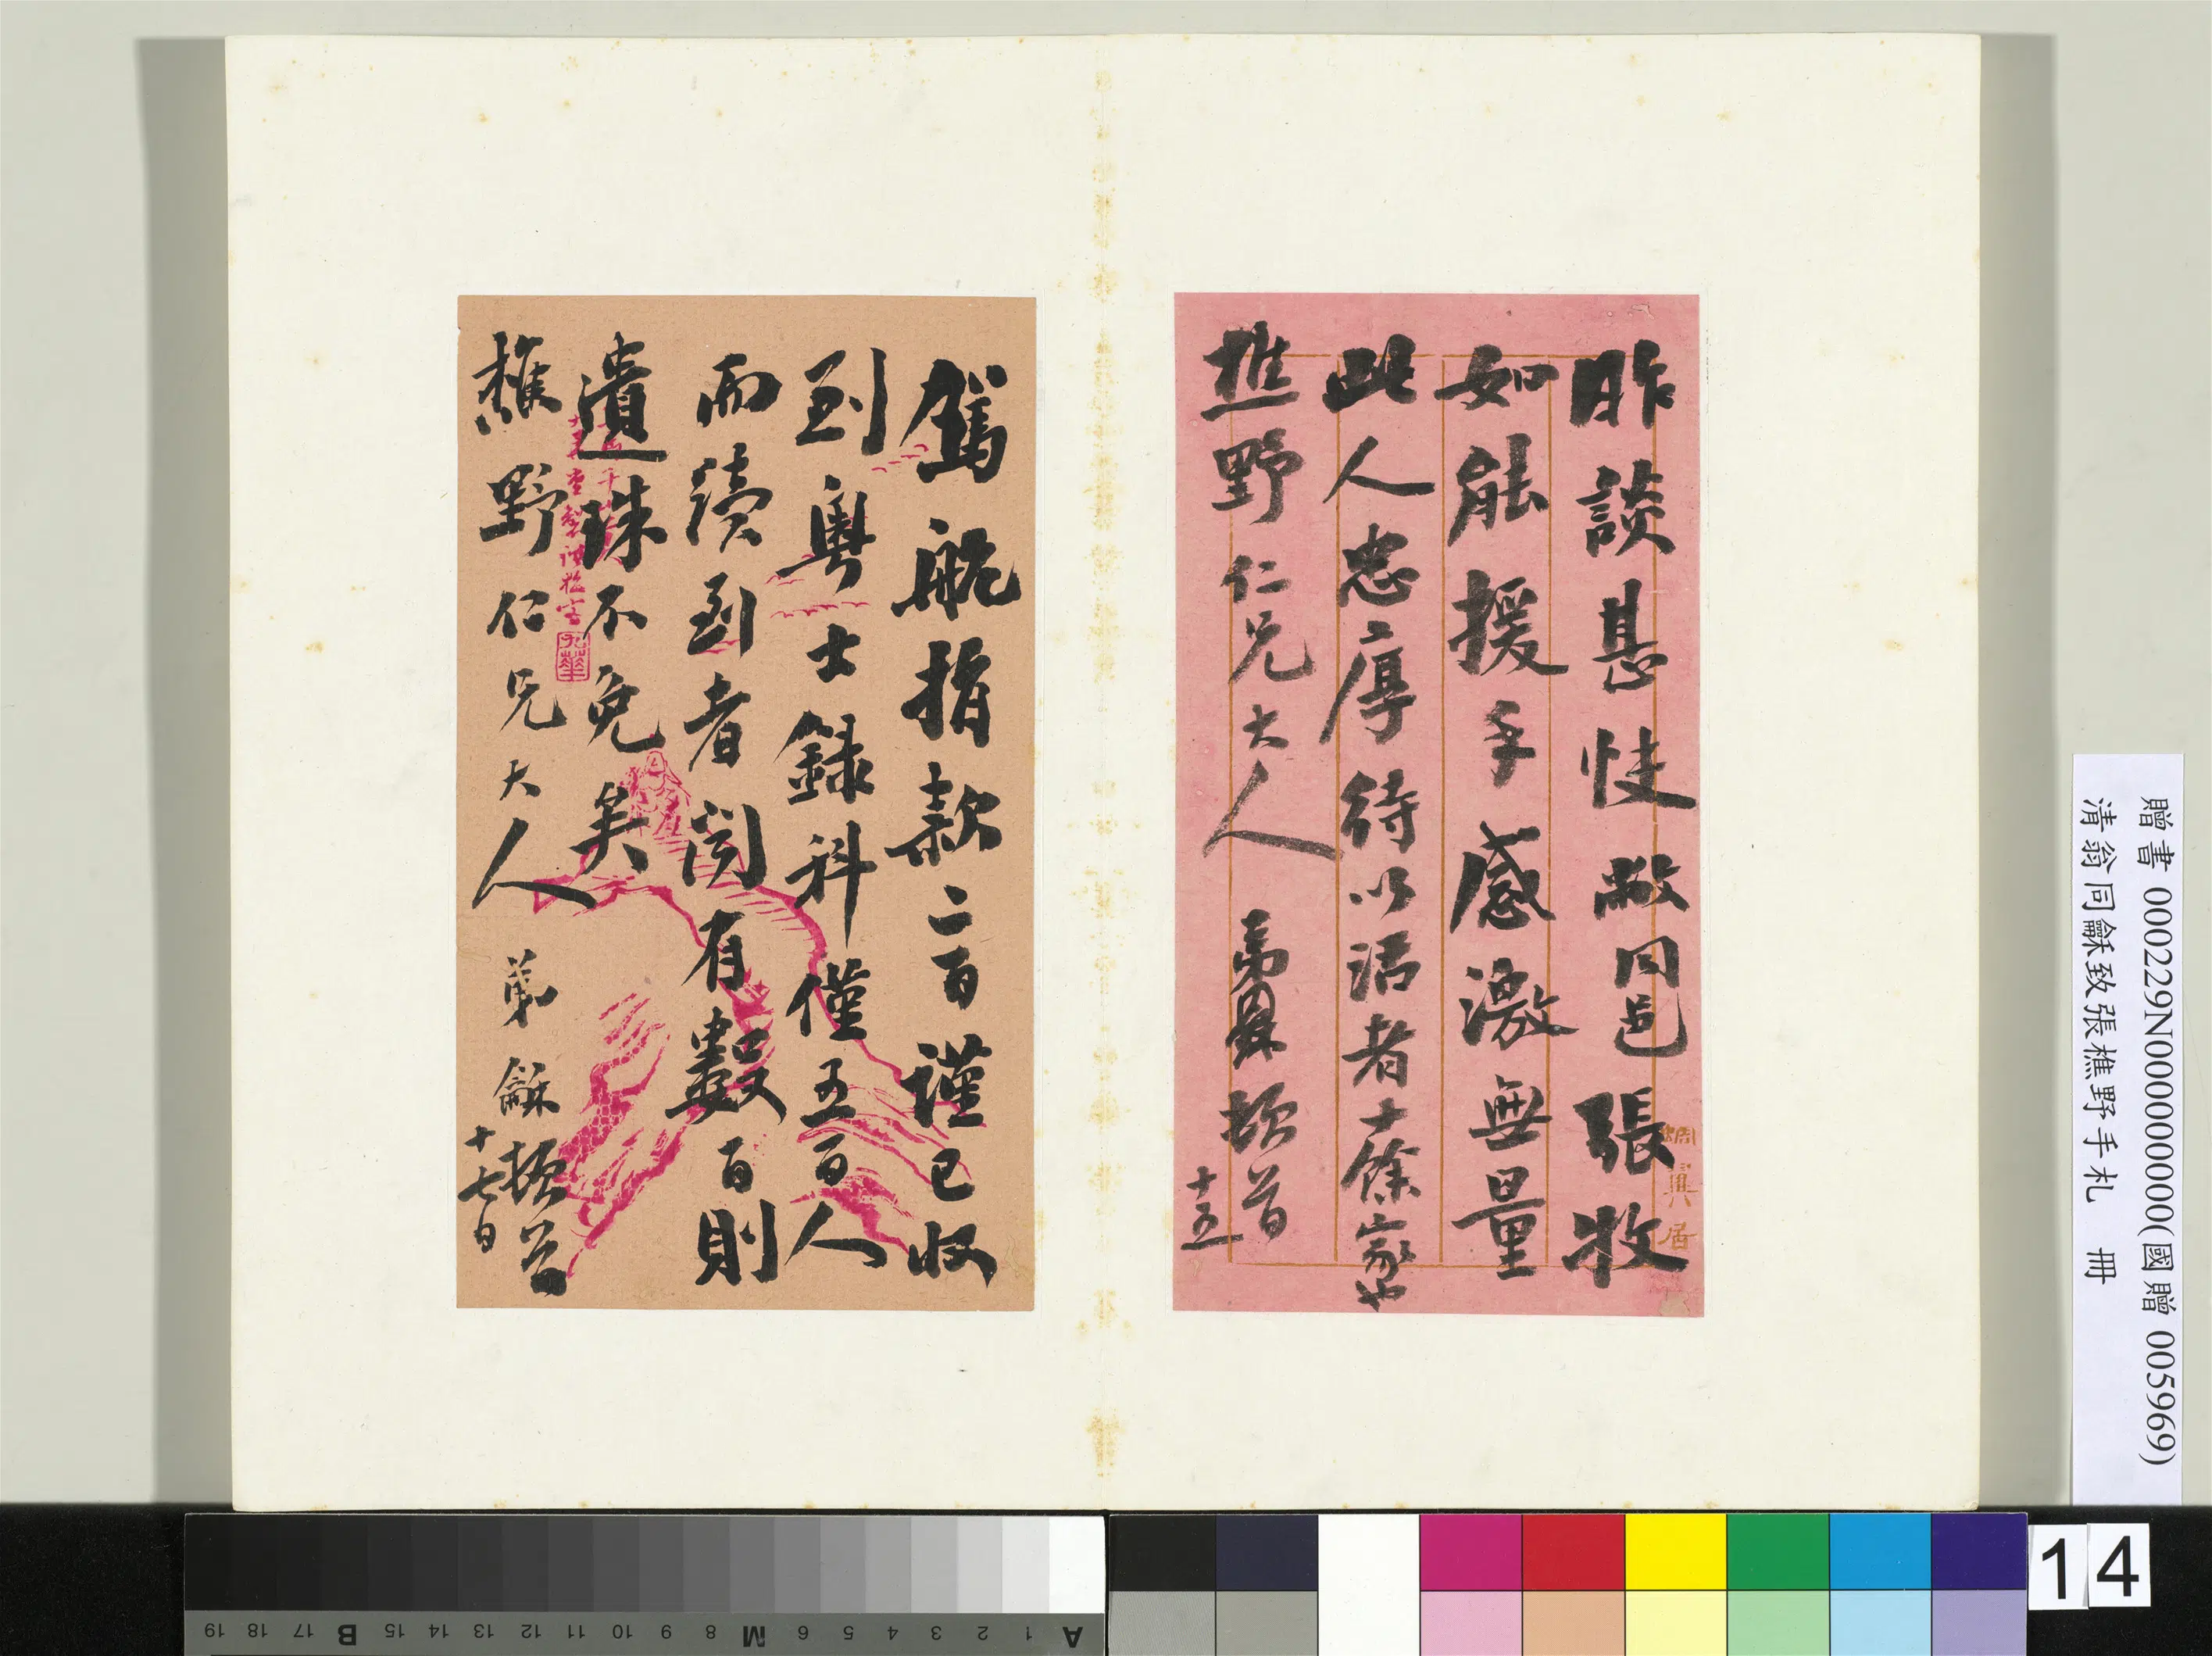 昨談甚快敝同邑張牧
如能援手感激無量
此人忠厚待以活者十餘家也
樵野仁兄大人 弟龢頓首
十五
蜩巽居
鴛航指款二百謹已收
到粵士錄科僅五百人
而續到者聞有數百則
遺珠不免矣
樵野仁兄大人 弟龢頓首
十七日
九華
贈書 000229N000000000(國贈 005969)
清翁同龢致張樵野手札 冊
14
A 1 2 3 4 5 6 M 8 9 10 11 12 13 14 15 B 17 18 19